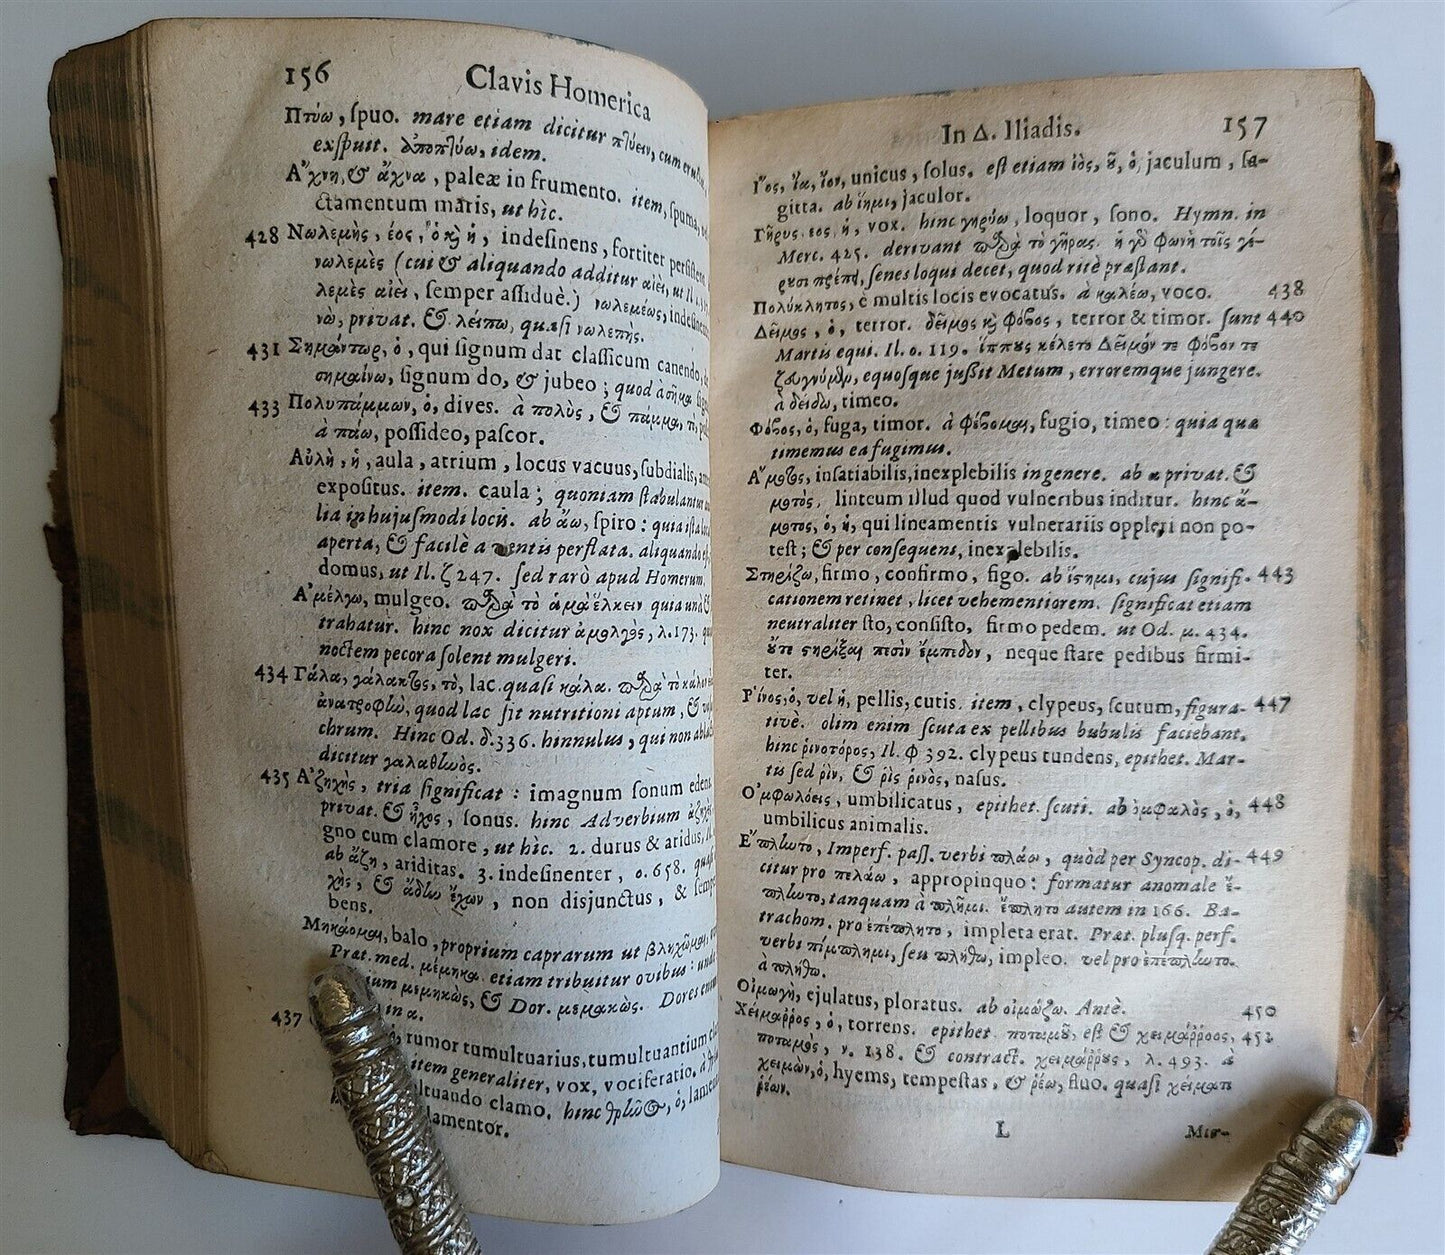 156 Clavis Homerica
Πτύω, ſpuo. mare etiam dicitur πτύειν, cum
exſpuit. ἀποπτύω, idem.
Α῎χνη, & ἄχνα, paleæ in frumento. item, ſpuma,
ctamentum maris, ut hìc.
428 Νωλεμὴς, έος, ὁ κὴ ἡ, indeſinens, fortiter perſiſtens
νωλεμὲς (cui & aliquando additur αἰεὶ, ut Il.
λεμὲς αἰεὶ, ſemper aſſiduè.) νωλεμέως, indeſinen
νὼ, privat. & λείπω, quaſi νωλεπὴς.
431 Σημάντωρ, ὁ, qui ſignum dat claſſicum canendo,
σημαίνω, ſignum do, & jubeo; quod
433 Πολυπάμμων, ὁ, dives. à πολὺς, & πάμμα, τὸ,
à πάω, poſſideo, paſcor.
Αὐλὴ, ἡ, aula, atrium, locus vacuus, ſubdialis,
expoſitus. item. caula; quoniam ſtabulantur
lia in hujuſmodi locis. ab ἄω, ſpiro: quia iſta
aperta, & facilè a ventis perflata. aliquando
domus, ut Il. ζ 247. ſed rarò apud Homerum.
Α᾿μέλγω, mulgeo. παρὰ τὸ ἁμα ἕλκειν quia unà
trahatur. hinc nox dicitur ἀμολγὸς, λ. 173.
noctem pecora ſolent mulgeri.
434 Γάλα, γάλακτος, τὸ, lac. quaſi κάλα. παρὰ τὸ
quod lac ſit nutritioni aptum, &
chrum. Hinc Od. δ. 336. hinnulus, qui non
dicitur γαλαθηνὸς.
435 Α᾿ζηχὴς, tria ſignificat: imagnum ſonum edens
privat. & ἦχος, ſonus. hinc Adverbium
gno cum clamore, ut hìc. 2. durus & aridus,
ab ἄζη, ariditas. 3. indeſinenter, ο. 658.
χὴς, & ἔχων, non disjunctus, & ſemper
bens.
Μηκάομαι, balo, proprium caprarum ut βληχῶμαι,
Præt. med. μέμηκα. etiam tribuitur ovibus: unde
ium μεμηκὼς, & Dor. μεμακὼς. Dores
in α.
437 ὁ, rumor tumultuarius, tumultuantium
item generaliter, vox, vociferatio.
ltuando clamo. hinc θρῆνος, ὁ, lamen
lamentor.
In Δ. Iliadis. 157
Ι῎ος, ἴα, ἴον, unicus, ſolus. eſt etiam ἰὸς, ῦ, ὁ, jaculum, ſa-
gitta. ab ἵημι, jaculor.
Γῆρυς, εος, ἡ, vox. hinc γηρύω, loquor, ſono. Hymn. in
Merc. 425. derivant παρὰ τὸ γῆρας. ἡ γὸ φωνὴ τοῖς γέ-
ρυσι πρέπει, ſenes loqui decet, quod ritè præſtant.
Πολύκλητος, è multis locis evocatus. à καλέω, voco. 438
Δεῖμος, ὁ, terror. δεῖμος κὴ φόβος, terror & timor. ſunt 440
Martis equi. Il. ο. 119. ἵππους κέλετο Δεῖμόν τε Φόβον τε
ζευγνύμεν, equoſque juſſit Metum, erroremque jungere.
à δείδω, timeo.
Φόβος, ὁ, fuga, timor. à φέβομαι, fugio, timeo: quia quæ
timemus ea fugimus.
Α῎μοτος, inſatiabilis, inexplebilis in genere. ab α privat. &
μοτὸς, linteum illud quod vulneribus inditur. hinc ἄ-
μοτος, ὁ, ἡ, qui lineamentis vulnerariis oppleri non po-
teſt; & per conſequens, inexplebilis.
Στηρίζω, firmo, confirmo, figo. ab ἵστημι, cujus ſignifi- 443
cationem retinet, licet vehementiorem. ſignificat etiam
neutraliter ſto, conſiſto, firmo pedem. ut Od. μ. 434.
ὔτε στηρίξαι ποσὶν ἔμπεδον, neque ſtare pedibus firmi-
ter.
Ρ῾ίνος, ὁ, vel ἡ, pellis, cutis. item, clypeus, ſcutum, figura- 447
tivè. olim enim ſcuta ex pellibus bubulis faciebant.
hinc ῥινοτόρος, Il. Φ 392. clypeus tundens, epithet. Mar-
tis ſed ρὶν, & ῥὶς ῥινὸς, naſus.
Ο᾿μφαλόεις, umbilicatus, epithet. ſcuti. ab ὀμφαλὸς, ὁ, 448
umbilicus animalis.
Ε῎πλωτο, Imperf. paſſ. verbi πλάω, quòd per Syncop. di- 449
citur pro πελάω, appropinquo: formatur anomale ἔ-
πλωτο, tanquam à πλῆμι. ἔπλητο autem in 166. Ba-
trachom. pro ἐπέπλητο, impleta erat. Præt. pluſq. perf.
verbi πίμπλημι, ſeu πλήθω, impleo. vel pro ἐπέπλωτο.
à πλήθω.
Οἰμωγὴ, ejulatus, ploratus. ab οἰμώζω. Antè. 450
Χείμαῤῥος, ὁ, torrens. epithet. ποταμοῦ, eſt & χειμάῤῥοος, 452
ποταμὸς, ν. 138. & contract. χειμάῤῥους, λ. 493. à
χειμὼν, ὁ, hyems, tempeſtas, & ῥέω, fluo. quaſi χείματι
ῥέων.
L Μισ-